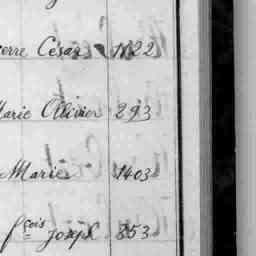 erre César 1122
Marie Ollivier 293
Marie 1403
fçois Joseph 853